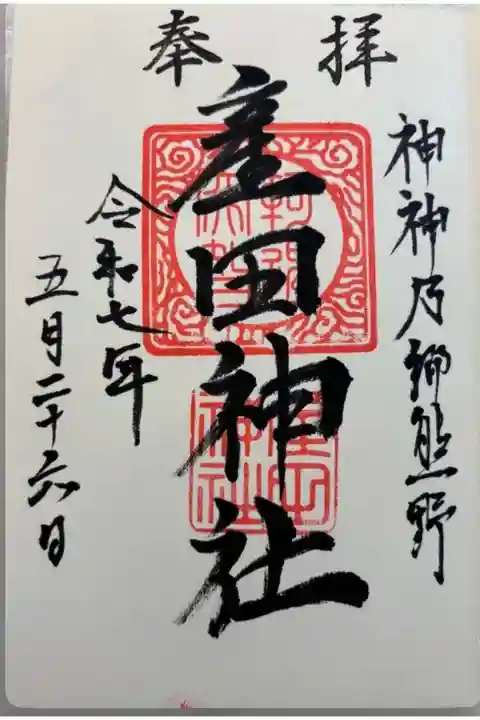 奉拝
神神乃郷熊野
産田神社
令和七年
五月二十六日
産田神社